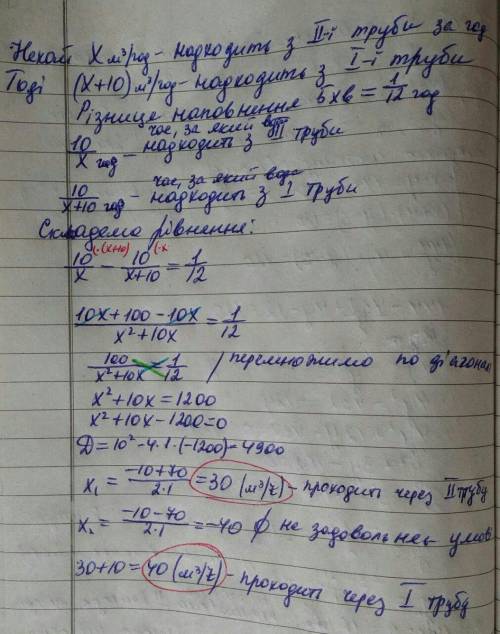 Нехай x м³/год - надходить з II-ї труби за год
Тоді (x+10) м³/год - надходить з I-ї труби
Різниця наповнення 5хв = 1/12 год
час, за який вода
10/x год - надходить з II труби
час, за який вода
10/x+10 год - надходить з I труби
Складемо рівнення:
10/x (·(x+10) - 10/x+10 (·x = 1/12
10x+100-10x/x²+10x = 1/12
100/x²+10x = 1/12 / перемножимо по діагонал
x²+10x=1200
x²+10x-1200=0
D=10²-4·1·(-1200)=4900
x₁ = -10+70/2·1 = 30 (м³/г) - проходить через II трубу
x₂ = -10-70/2·1 = -40 ∅ не задовольняє умов
30+10=40 (м³/г) - проходить через I трубу